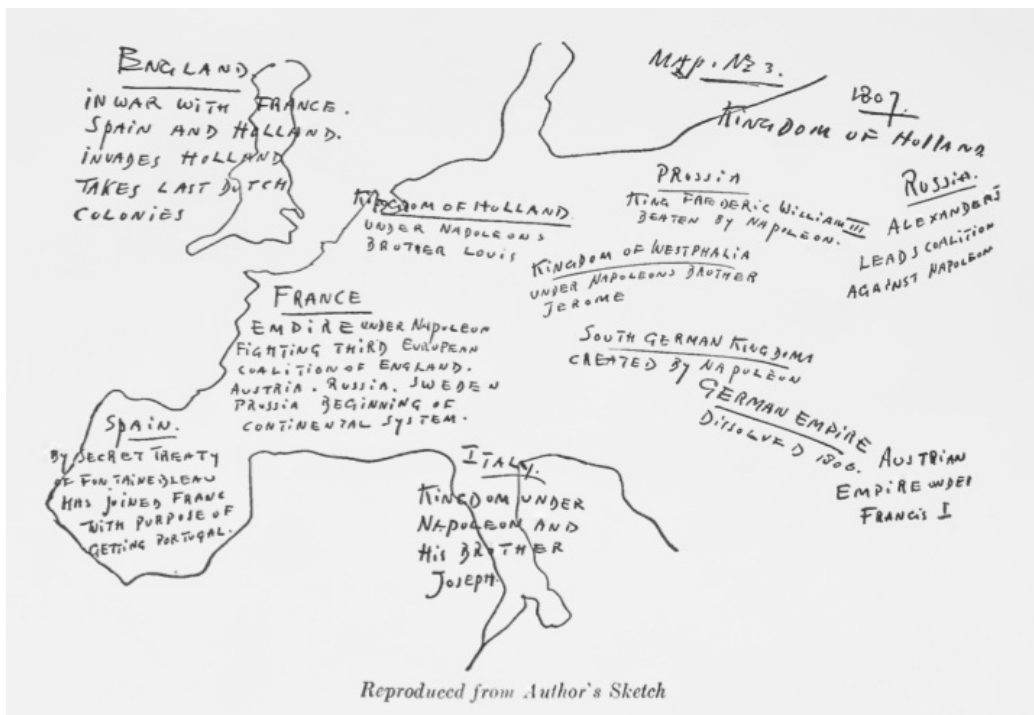 MAP. No 3.
1807.
KINGDOM OF HOLLAND
ENGLAND.
IN WAR WITH FRANCE.
SPAIN AND HOLLAND.
INVADES HOLLAND
TAKES LAST DUTCH
COLONIES
KINGDOM OF HOLLAND
UNDER NAPOLEONS
BROTHER LOUIS
PRUSSIA
KING FREDERIC WILLIAM III
BEATEN BY NAPOLEON.
RUSSIA.
ALEXANDER I
LEADS COALITION
AGAINST NAPOLEON
KINGDOM OF WESTPHALIA
UNDER NAPOLEONS BROTHER
JEROME
FRANCE
EMPIRE UNDER NAPOLEON
FIGHTING THIRD EUROPEAN
COALITION OF ENGLAND.
AUSTRIA. RUSSIA. SWEDEN
PRUSSIA BEGINNING OF
CONTINENTAL SYSTEM.
SOUTH GERMAN KINGDOMS
CREATED BY NAPOLEON
GERMAN EMPIRE
DISSOLVED 1806.
AUSTRIAN
EMPIRE UNDER
FRANCIS I
SPAIN.
BY SECRET TREATY
OF FONTAINEBLEAU
HAS JOINED FRANC
WITH PURPOSE OF
GETTING PORTUGAL.
ITALY.
KINGDOM UNDER
NAPOLEON AND
HIS BROTHER
JOSEPH.
Reproduced from Author's Sketch